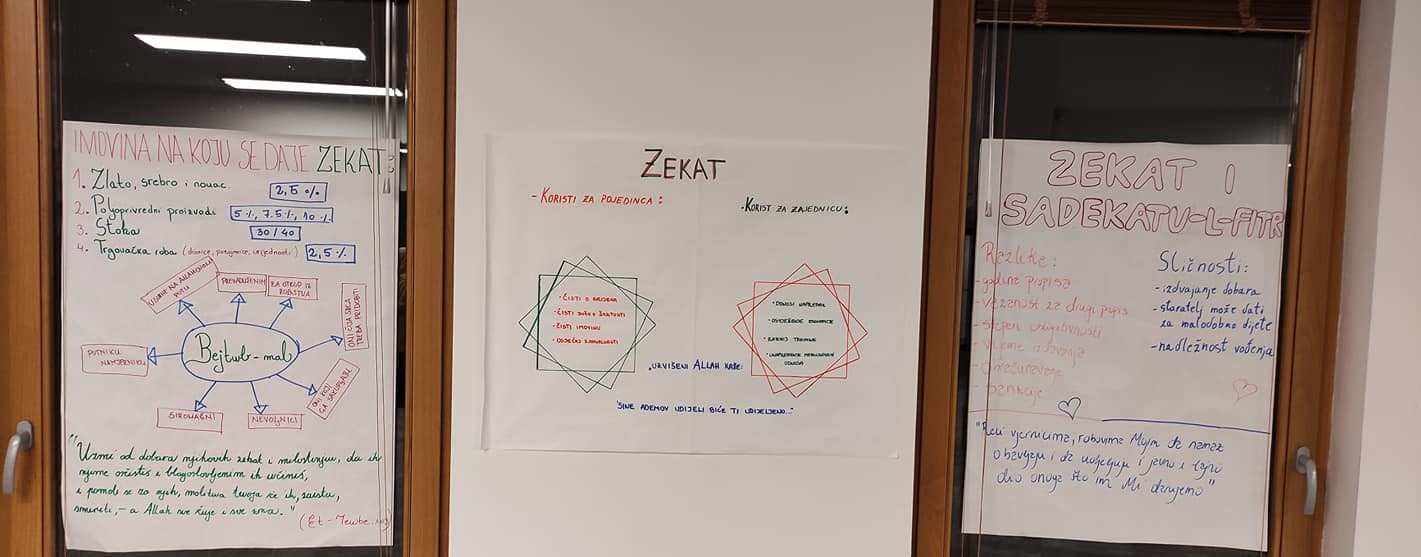 IMOVINA NA KOJU SE DAJE ZEKAT:
1. Zlato, srebro i novac. 2,5 %
2. Poljoprivredni proizvodi 5 %, 7.5 %, 10 %
3. Stoka 30 / 40
4. Trgovačka roba (dionice, vrijednosti) 2,5 %
U BORBI NA ALLAHOVOM PUTU
PREZADUŽENIM
ZA OTKUP IZ ROPSTVA
ONI ČIJA SRCA TREBA PRIDOBITI
PUTNIKU NAMJERNIKU
Bejtul-mal
ONI KOJI GA SAKUPLJAJU
SIROMAŠNI
NEVOLJNICI
"Uzmi od dobara njihovih zekat i milostinju, da ih
njime očistiš i blagoslovljenim ih učiniš,
i pomoli se za njih, molitva tvoja će ih, zaista,
smiriti, - a Allah sve čuje i sve zna."
(Et-Tewbe
ZEKAT
- KORISTI ZA POJEDINCA:
• ČISTI O GRIJEHA
• ČISTI DUŠU O ŠKRTOSTI
• ČISTI IMOVINU
• OSJEĆAJ ZAHVALNOSTI
• KORIST ZA ZAJEDNICU:
• DONOSI NAPREDAK
• RAZVOJ TRGOVINE
• UNAPREĐENJE MEĐULJUDSKIH
ODNOSA
"UZVIŠENI ALLAH KAŽE:
"SINE ADEMOV UDIJELI BIĆE TI UDIJELJENO..."
ZEKAT I
SADEKATU-L-FITR
Razlike:
- godine propisa
- vezanost za drugi propis
- stepen obligatnosti
- vrijeme izdvajanja
- obračunavanje
- funkcije
Sličnosti:
- izdvajanje dobara
- staratelj može dati
za malodobno dijete
- nadležnost vođenja
"Reci vjernicima, robovima Mojim da namaz
obavljaju i da udjeljuju i javno i tajno
dio onoga što im Mi darujemo"